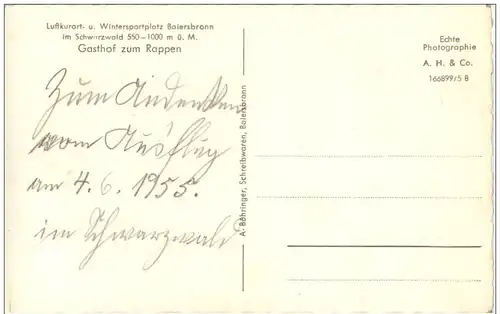 Luftkurort- u. Wintersportplatz Baiersbronn
im Schwarzwald 550–1000 m ü. M.
Gasthof zum Rappen
Zum Andenken
vom Ausflug
am 4.6.1955.
im Schwarzwald
A. Böhringer, Schreibwaren, Baiersbronn
Echte
Photographie
A. H. & Co.
166899/5 B